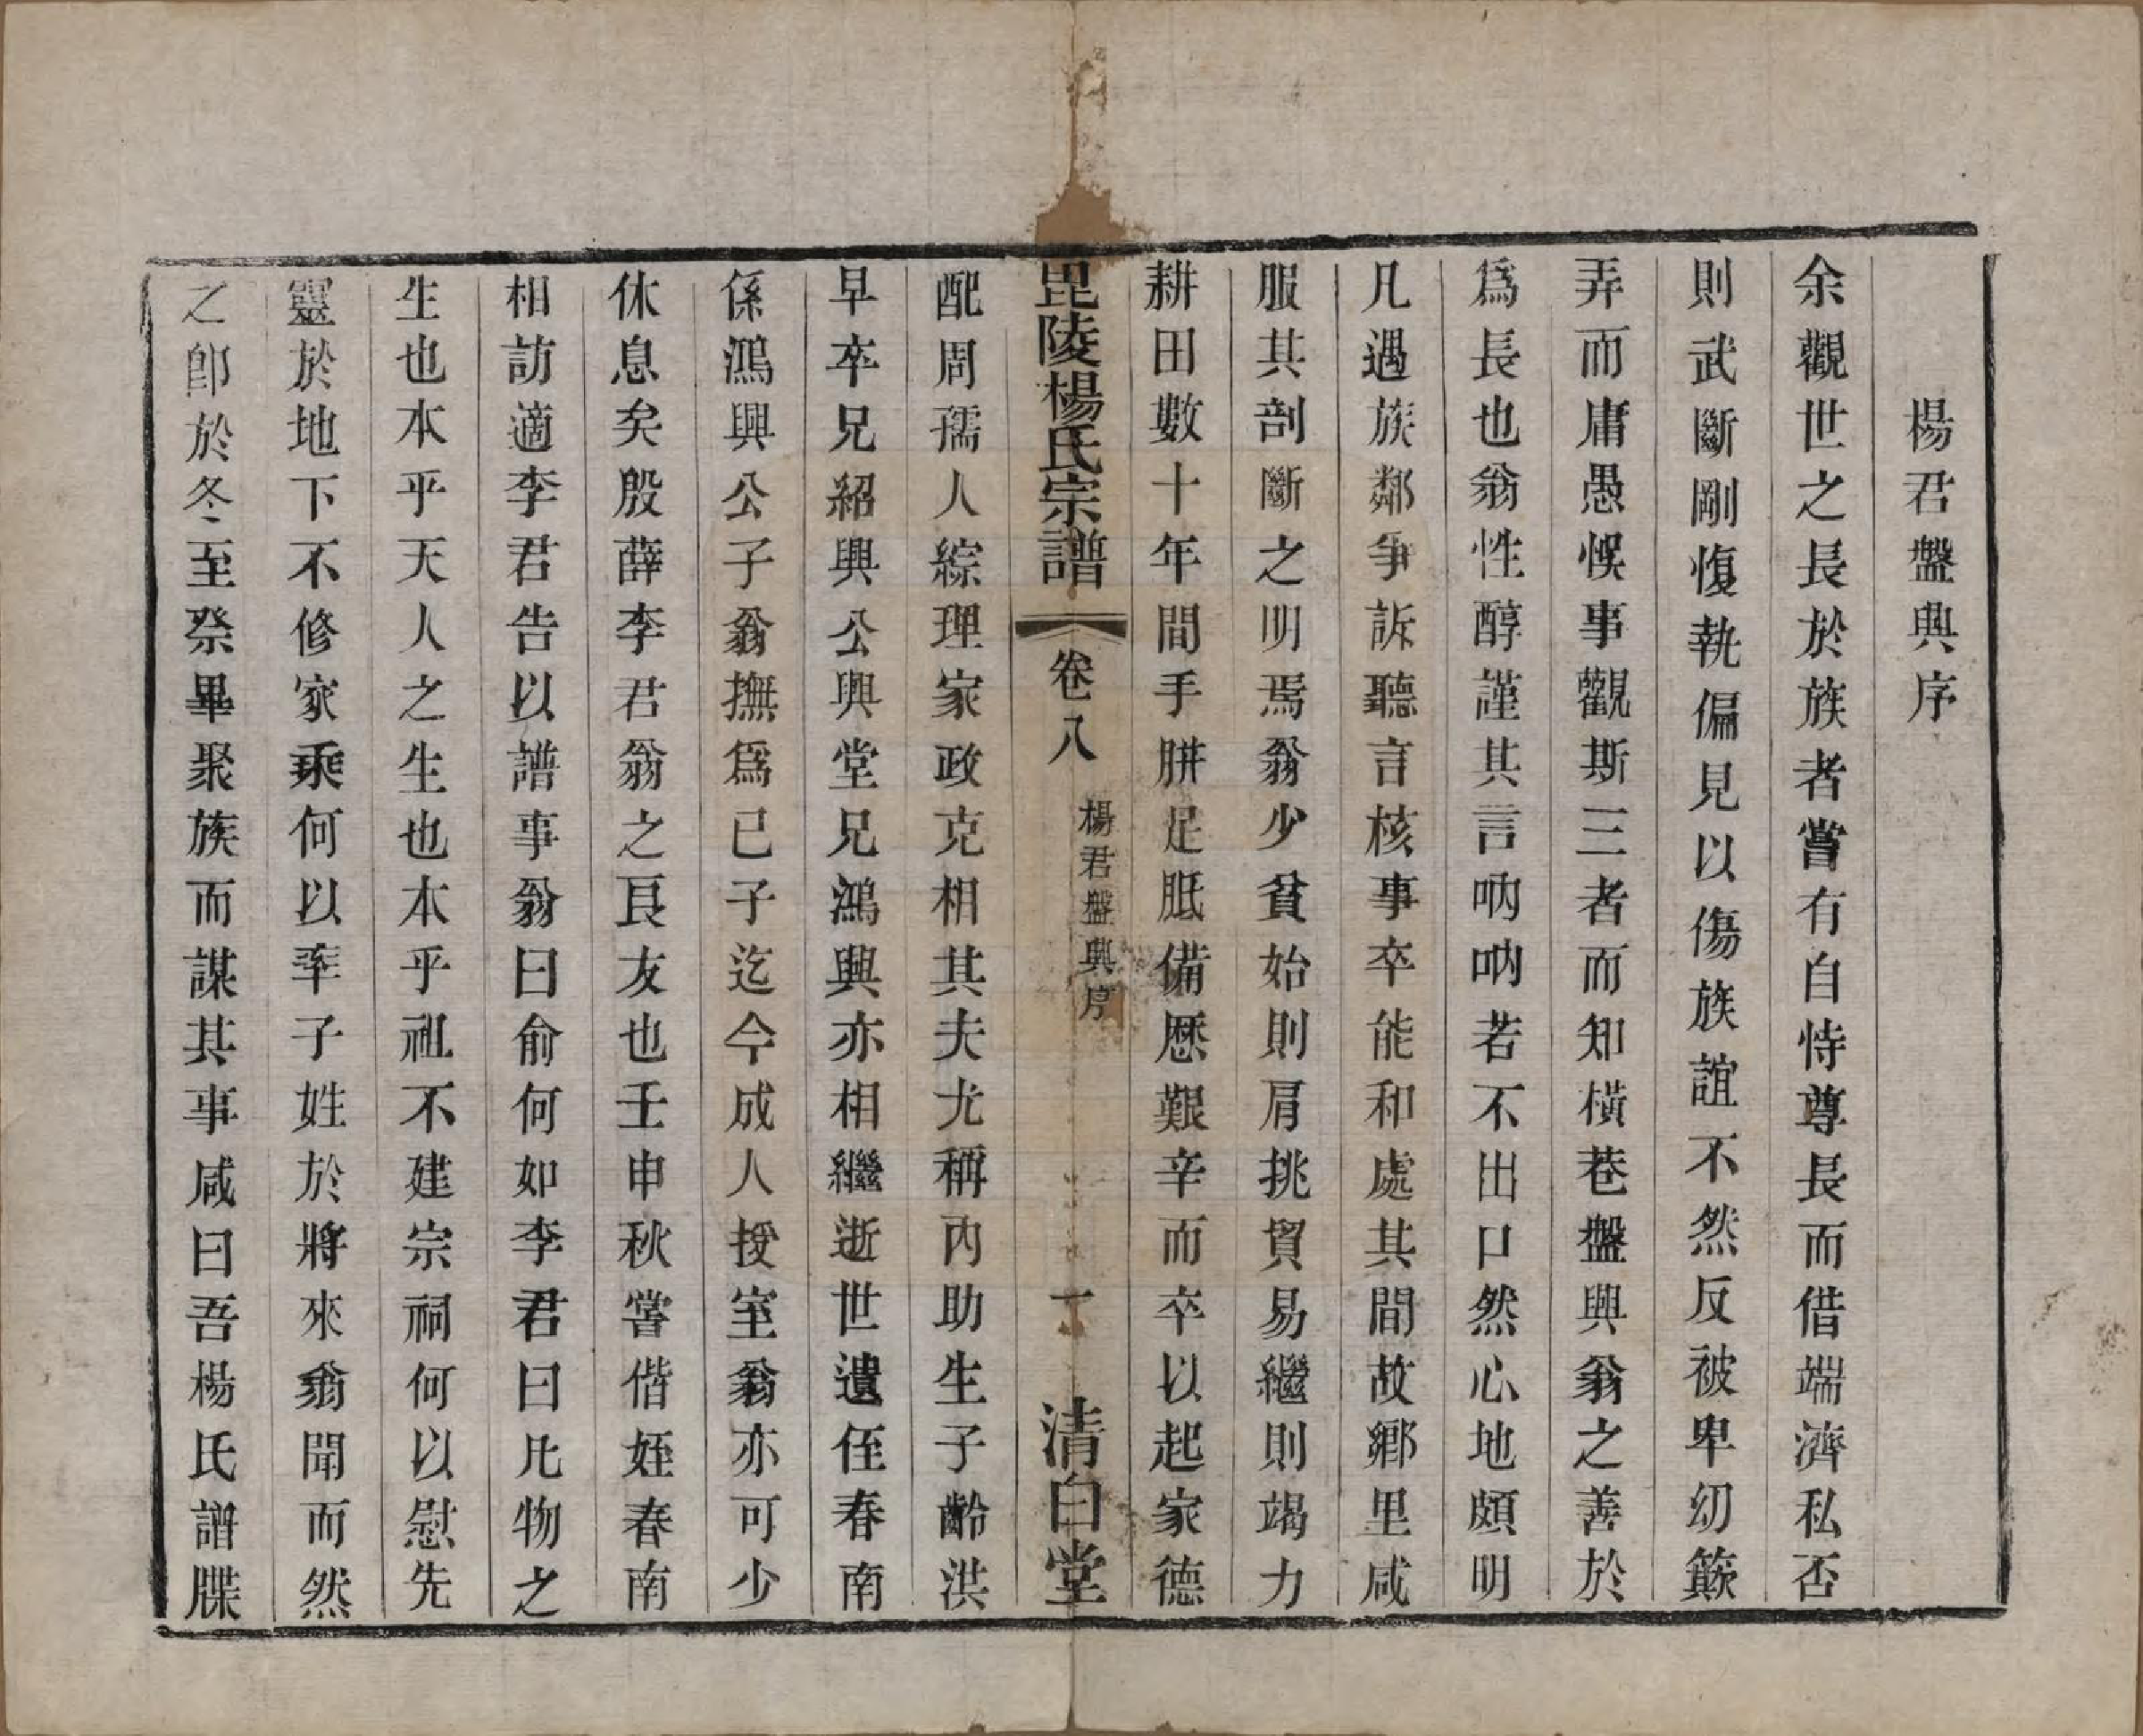 楊君盤興序
余觀世之長於族者嘗有自恃尊長而借端濟私否
則武斷剛愎執偏見以傷族誼不然反被卑幼簸
弄而庸愚悞事觀斯三者而知橫巷盤興翁之善於
爲長也翁性醇謹其言吶吶若不出口然心地頗明
凡遇族鄰爭訴聽言核事卒能和處其間故鄉里咸
服其剖斷之明焉翁少貧始則肩挑貿易繼則竭力
耕田數十年間手胼足胝備歷艱辛而卒以起家德
毘陵楊氏宗譜 卷八 楊君盤興序 一 清白堂
配周孺人綜理家政克相其夫尤稱內助生子齡洪
早卒兄紹興公與堂兄鴻興亦相繼逝世遺侄春南
係鴻興公子翁撫爲已子迄今成人授室翁亦可少
休息矣殷薛李君翁之良友也壬申秋嘗偕姪春南
相訪適李君告以譜事翁曰俞何如李君曰凡物之
生也本乎天人之生也本乎祖不建宗祠何以慰先
靈於地下不修家乘何以率子姓於將來翁聞而然
之卽於冬至祭畢聚族而謀其事咸曰吾楊氏譜牒